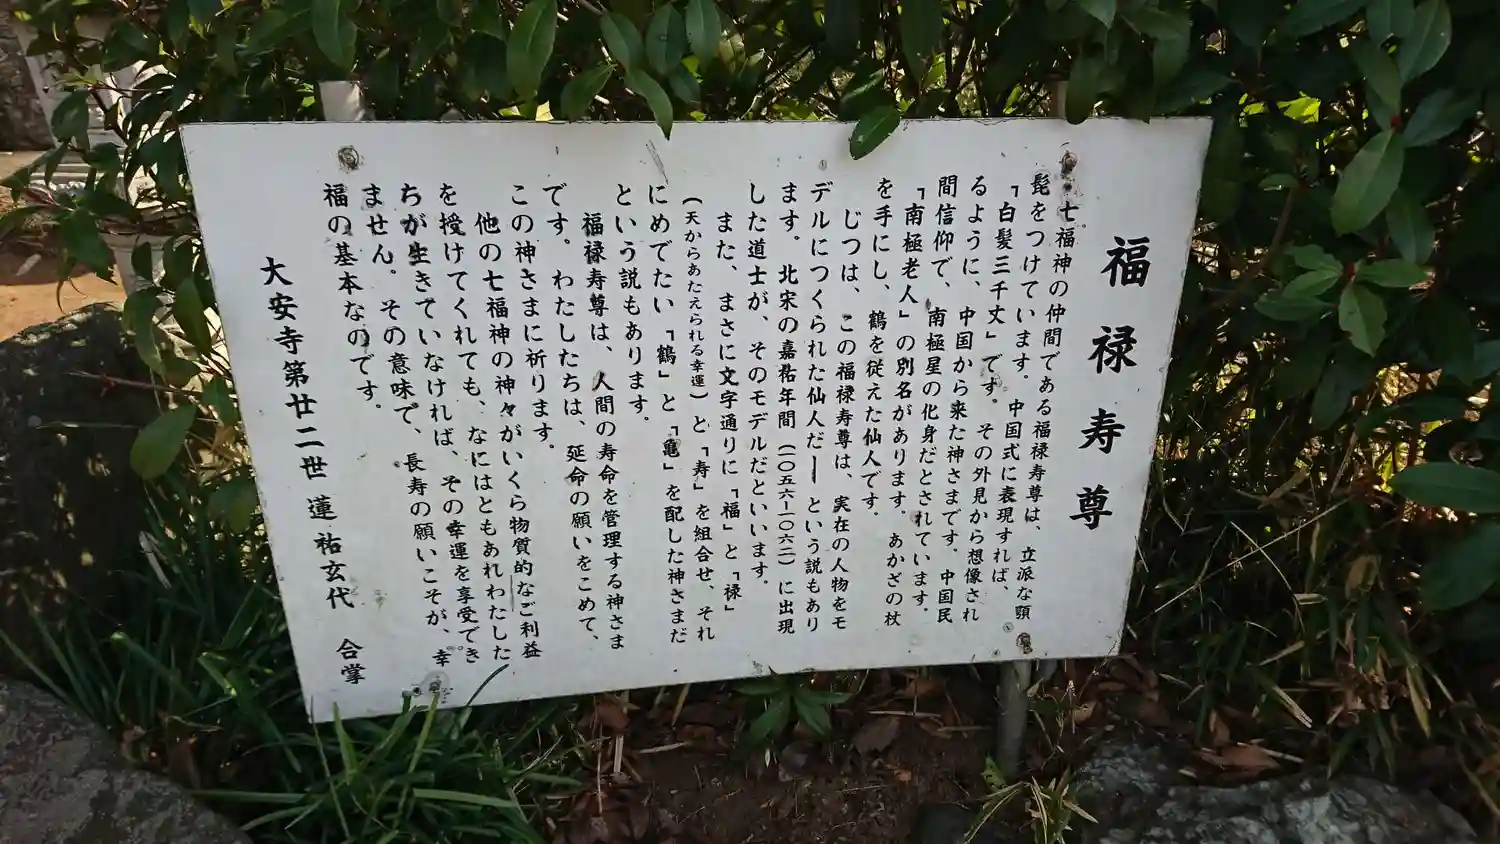 福禄寿尊
七福神の仲間である福禄寿尊は、立派な顎
髭をつけています。中国式に表現すれば、
「白髪三千丈」です。その外見から想像され
るように、中国から来た神さまです。中国民
間信仰で、南極星の化身だとされています。
「南極老人」の別名があります。あかざの杖
を手にし、鶴を従えた仙人です。
じつは、この福禄寿尊は、実在の人物をモ
デルにつくられた仙人だ——という説もあり
ます。北宋の嘉祐年間(一〇五六—一〇六二)に出現
した道士が、そのモデルだといいます。
また、まさに文字通りに「福」と「禄」
(天からあたえられる幸運)と「寿」を組合せ、それ
にめでたい「鶴」と「亀」を配した神さまだ
という説もあります。
福禄寿尊は、人間の寿命を管理する神さま
です。わたしたちは、延命の願いをこめて、
この神さまに祈ります。
他の七福神の神々がいくら物質的なご利益
を授けてくれても、なにはともあれわたした
ちが生きていなければ、その幸運を享受でき
ません。その意味で、長寿の願いこそが、幸
福の基本なのです。
大安寺第廿二世 蓮祐玄代 合掌